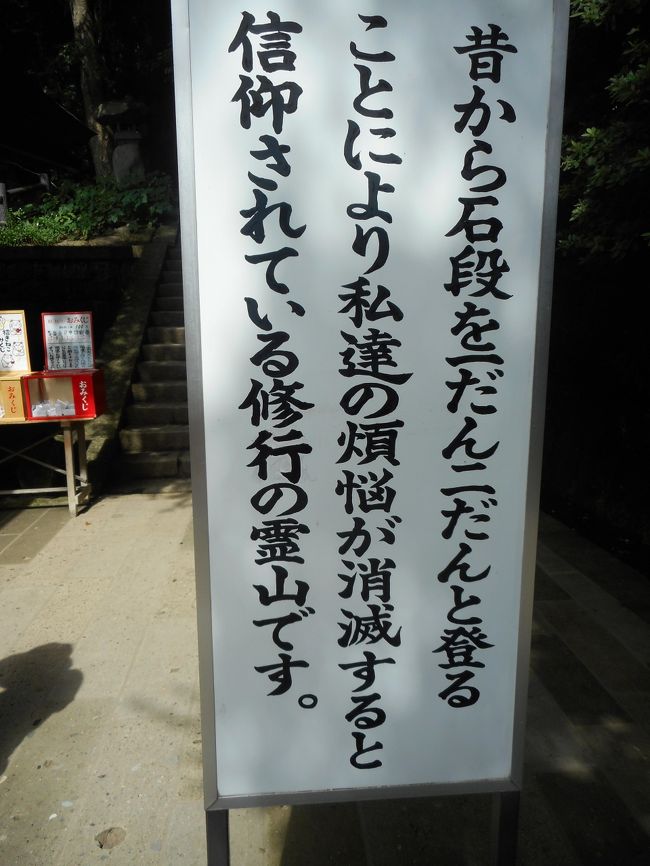 昔から石段を一だん二だんと登る
ことにより私達の煩悩が消滅すると
信仰されている修行の霊山です。
おみくじ
おみくじ
おみくじ